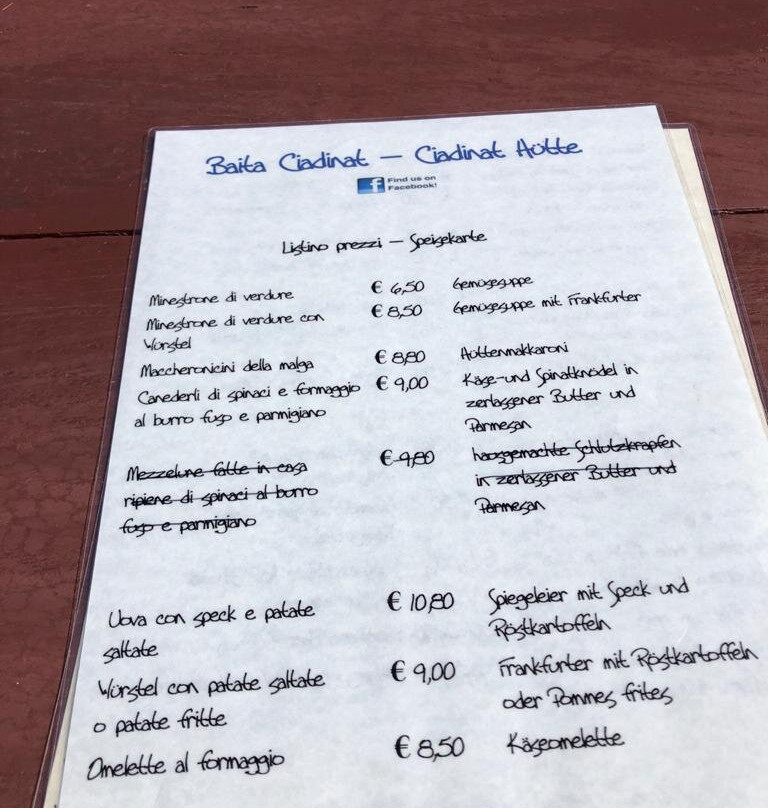 Baita Ciadinat – Ciadinat Hütte
Find us on
Facebook!
Listino prezzi – Speisekarte
Minestrone di verdure € 6,50 Gemüsesuppe
Minestrone di verdure con € 8,50 Gemüsesuppe mit Frankfurter
Würstel
Maccheronicini della malga € 8,80 Hüttenmakkaroni
Canederli di spinaci e formaggio € 9,00 Käse-und Spinatknödel in
al burro fuso e parmigiano zerlassener Butter und
Parmesan
Mezzelune fatte in casa € 9,80 hausgemachte Schlutzkrapfen
ripiene di spinaci al burro in zerlassener Butter und
fuso e parmigiano Parmesan
Uova con speck e patate € 10,80 Spiegeleier mit Speck und
saltate Röstkartoffeln
Würstel con patate saltate € 9,00 Frankfurter mit Röstkartoffeln
o patate fritte oder Pommes frites
Omelette al formaggio € 8,50 Käseomelette